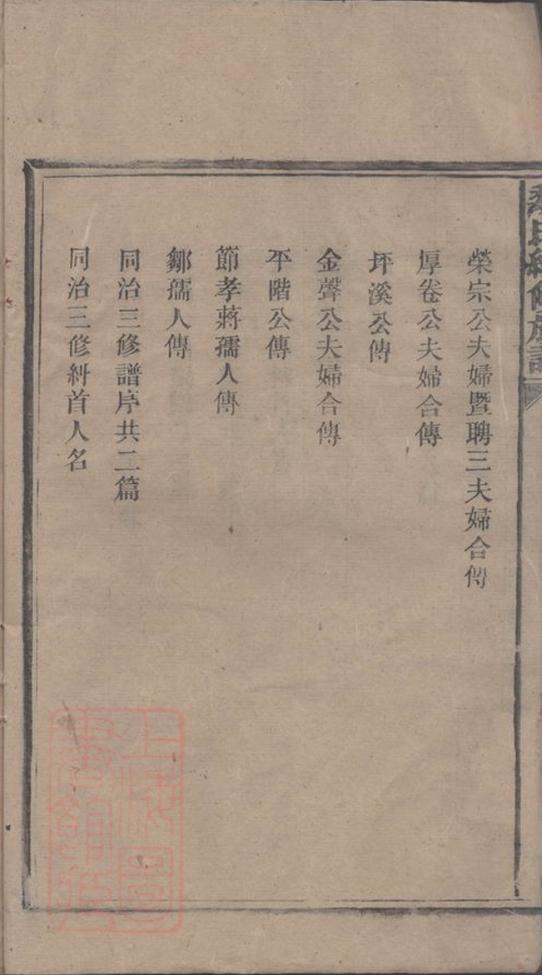 氏續修族譜
榮宗公夫婦暨聘三夫婦合傳
厚卷公夫婦合傳
坪溪公傳
金聲公夫婦合傳
平階公傳
節孝蔣孺人傳
鄒孺人傳
同治三修譜序共二篇
同治三修糾首人名
上圖